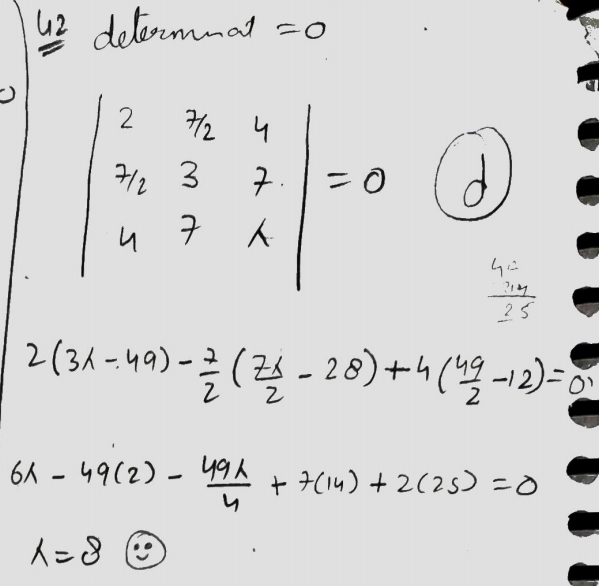 42 determinat = 0
| 2 7/2 4 |
| 7/2 3 7. | = 0 d
| 4 7 λ |
25
2(3λ - 49) - 7/2 (7λ/2 - 28) + 4(49/2 - 12) = 0
6λ - 49(2) - 49λ/4 + 7(14) + 2(25) = 0
λ = 8 ☺